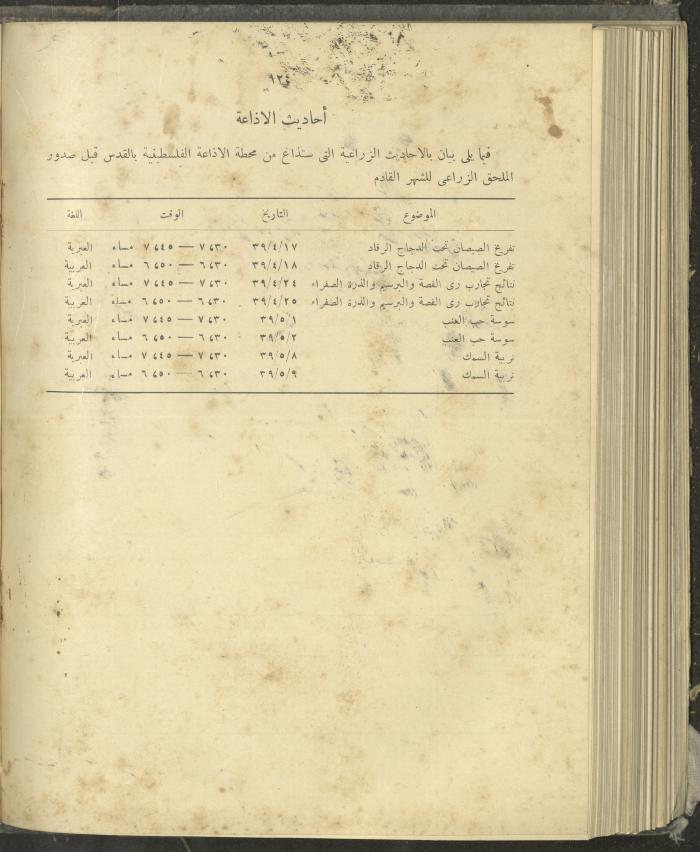 ١٢٤
أحاديث الاذاعة
فيما يلى بيان بالاحاديث الزراعية التى ستذاع من محطة الاذاعة الفلسطينية بالقدس قبل صدور
الملحق الزراعى للشهر القادم
الموضوع التاريخ الوقت اللغة
تفريخ الصيصان تحت الدجاج الرقاد ٣٩/٤/١٧ ٧،٣٠ — ٧،٤٥ مساء العبرية
تفريخ الصيصان تحت الدجاج الرقاد ٣٩/٤/١٨ ٦،٣٠ — ٦،٥٠ مساء العربية
نتائج تجارب رى الفصة والبرسيم والذرة الصفراء ٣٩/٤/٢٤ ٧،٣٠ — ٧،٤٥ مساء العبرية
نتائج تجارب رى الفصة والبرسيم والذرة الصفراء ٣٩/٤/٢٥ ٦،٣٠ — ٦،٥٠ مساء العربية
سوسة حب العنب ٣٩/٥/١ ٧،٣٠ — ٧،٤٥ مساء العبرية
سوسة حب العنب ٣٩/٥/٢ ٦،٣٠ — ٦،٥٠ مساء العربية
تربية السمك ٣٩/٥/٨ ٧،٣٠ — ٧،٤٥ مساء العبرية
تربية السمك ٣٩/٥/٩ ٦،٣٠ — ٦،٥٠ مساء العربية